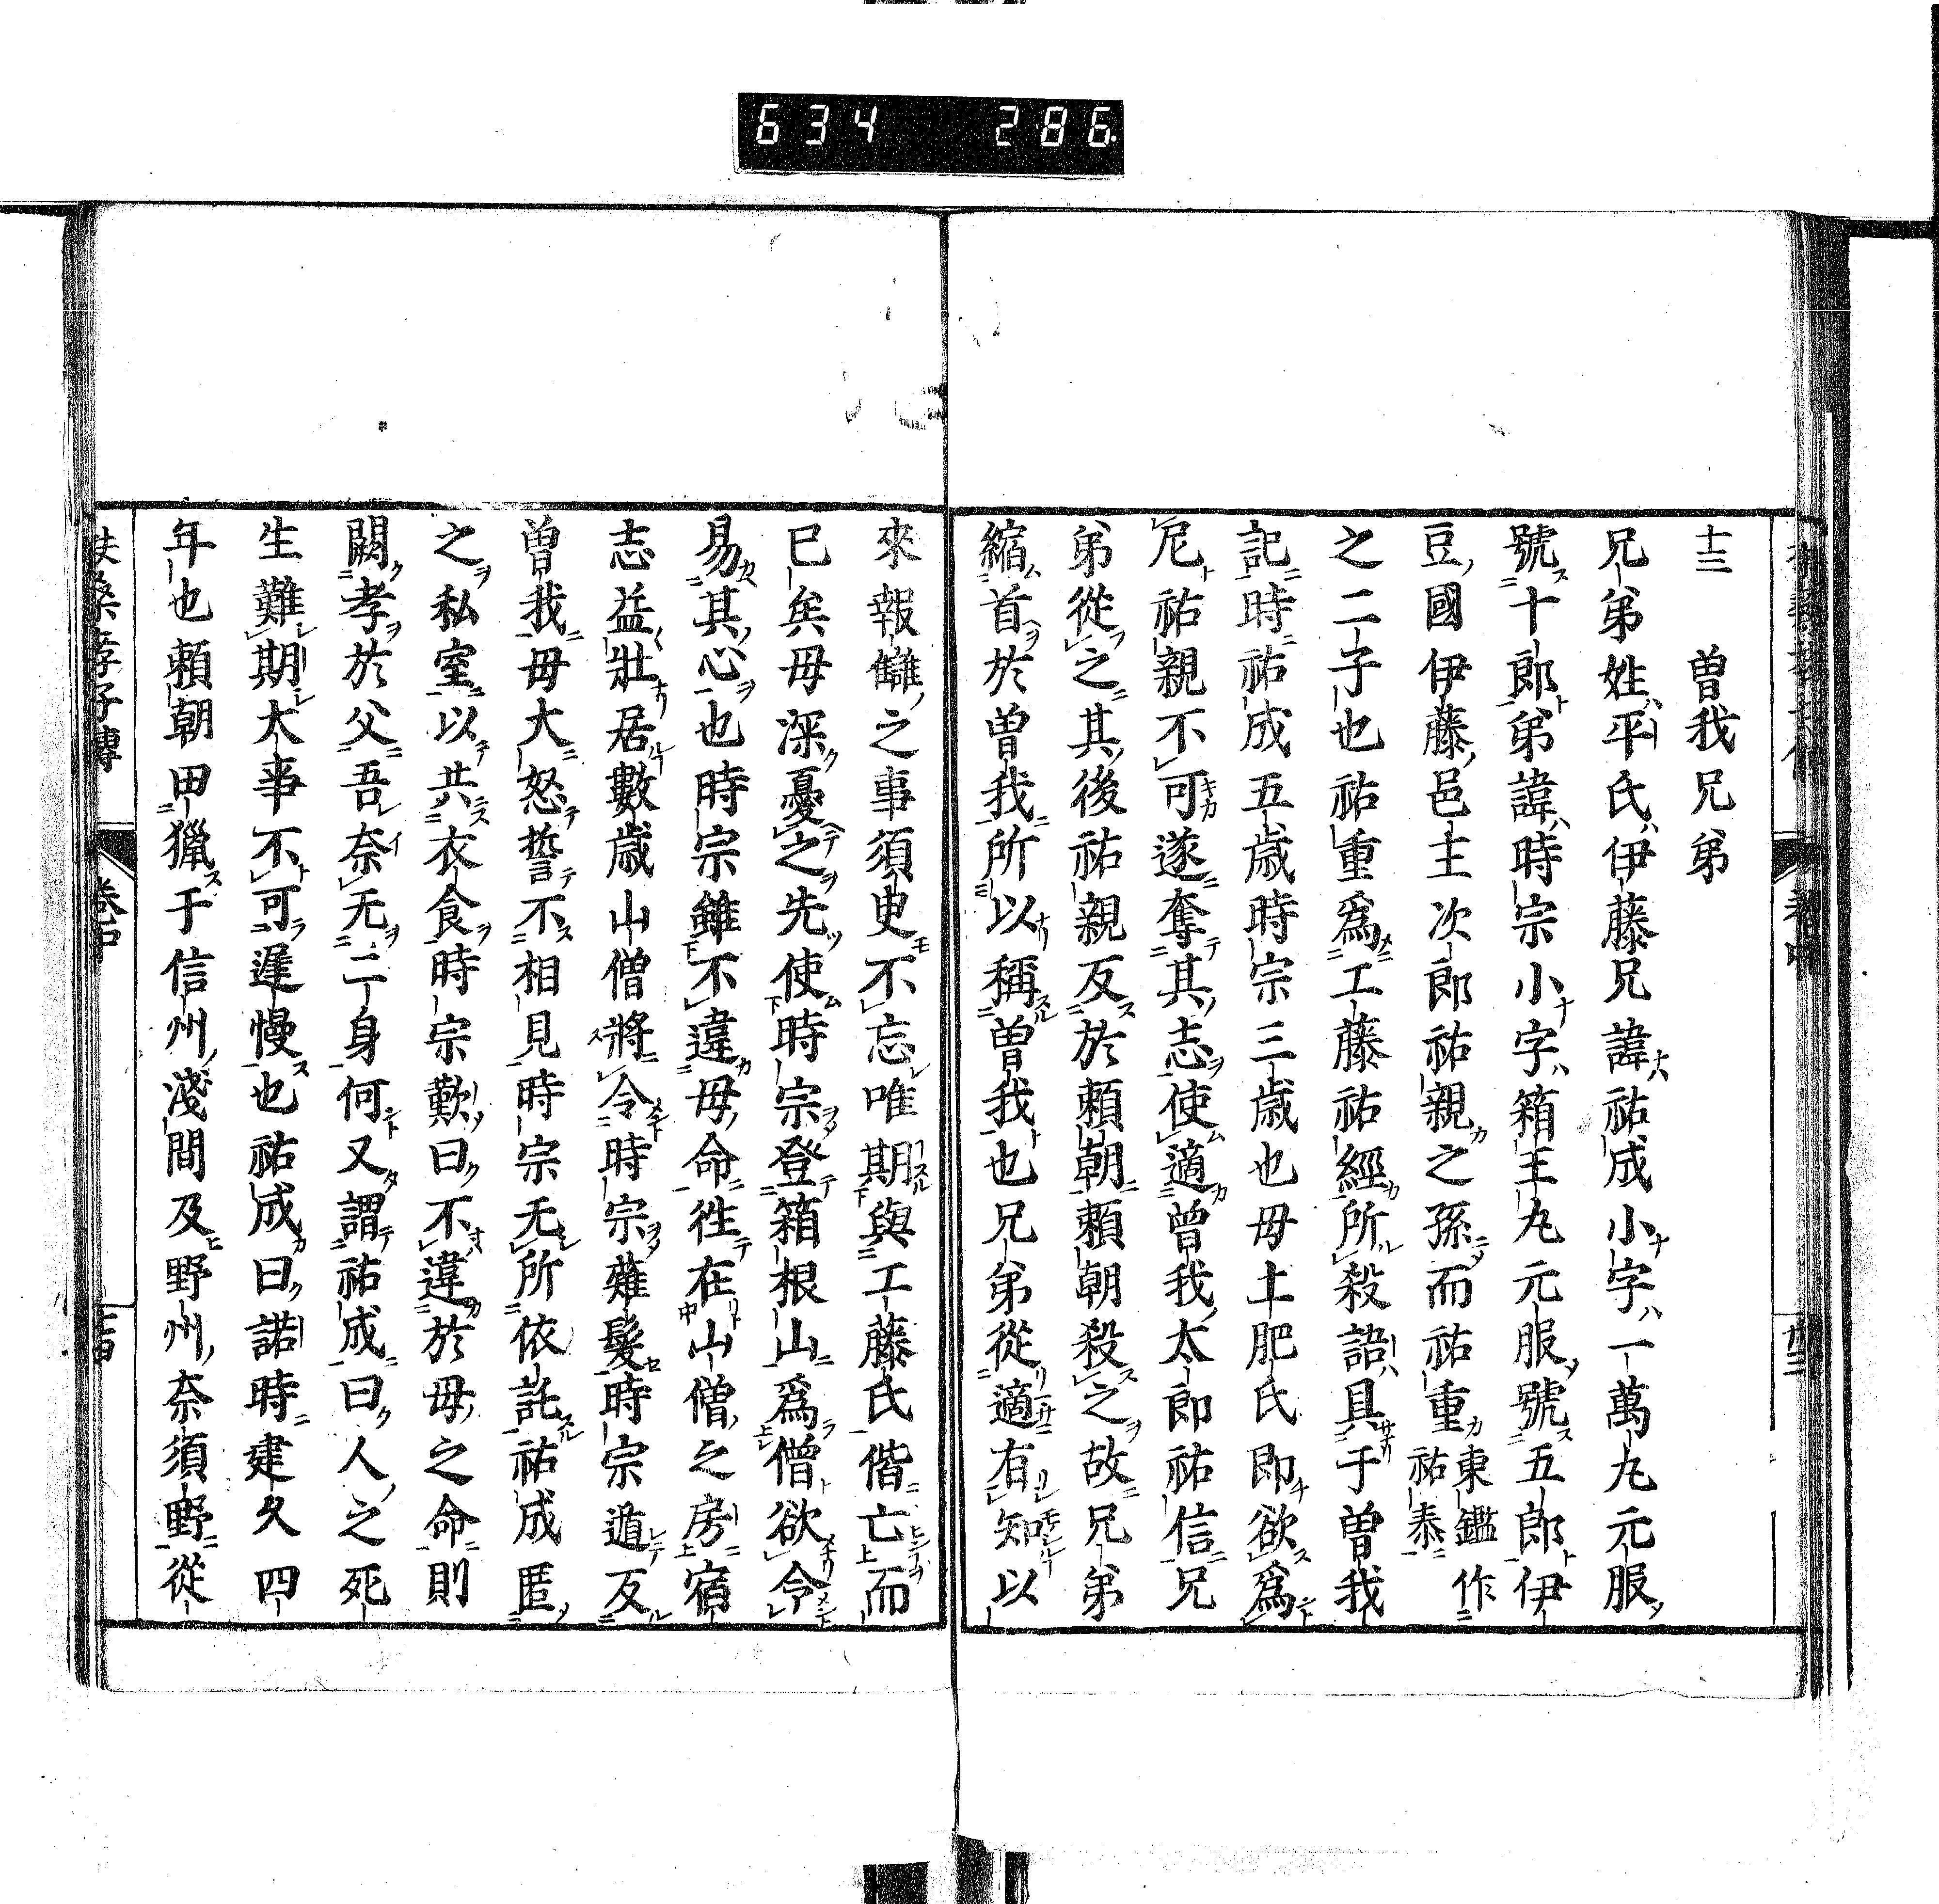 634 286
十三
曽我兄弟
兄弟姓平氏伊藤兄諱祐成小字一萬丸元服
號十郎弟諱時宗小字箱王丸元服號五郎伊
豆國伊藤邑主次郎祐親之孫而祐重東鑑作祐泰
之二子也祐重爲工藤祐經所殺語具于曽我
記時祐成五歳時宗三歳也母土肥氏即欲爲
尼祐親不可遂奪其志使適曽我太郎祐信兄
弟從之其後祐親反於頼朝頼朝殺之故兄弟
縮首於曽我所以稱曽我也兄弟從適有知以
來報讎之事須臾不忘唯期與工藤氏偕亡而
已矣母深憂之先使時宗登箱根山爲僧欲令
易其心也時宗雖不違母命徃在山僧之房宿
志益壯居數歳山僧將令時宗薙髮時宗遁反
曽我母大怒誓不相見時宗无所依託祐成匿
之私室以共衣食時宗歎曰不違於母之命則
闕孝於父吾奈无二身何又謂祐成曰人之死
生難期大事不可遲慢也祐成曰諾時建久四
年也頼朝田獵于信州淺間及野州奈須野從
扶桑孝子傳
卷中